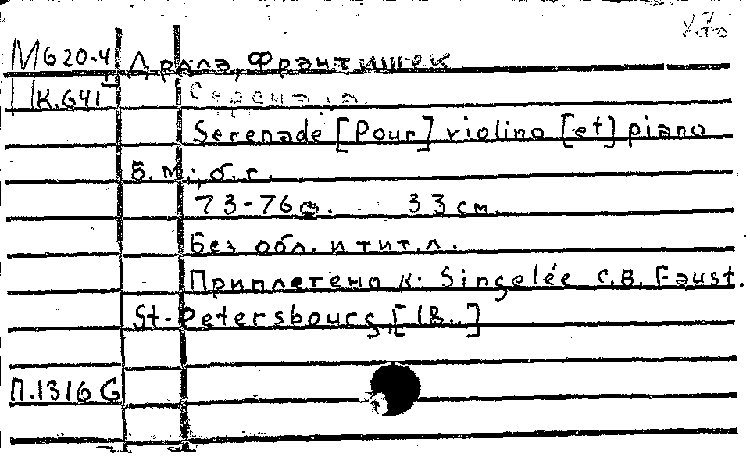 М620.4 Дрдла, Франтишек
П к.641 Серенада.
Serenade [Pour] violino [et] piano
Б.м., б.г.
73-76 с. 33 см.
Без обл. и тит.л.
Приплетено к: Singelée C.B. Faust.
St-Petersbourg, [18..]
П.1316 G